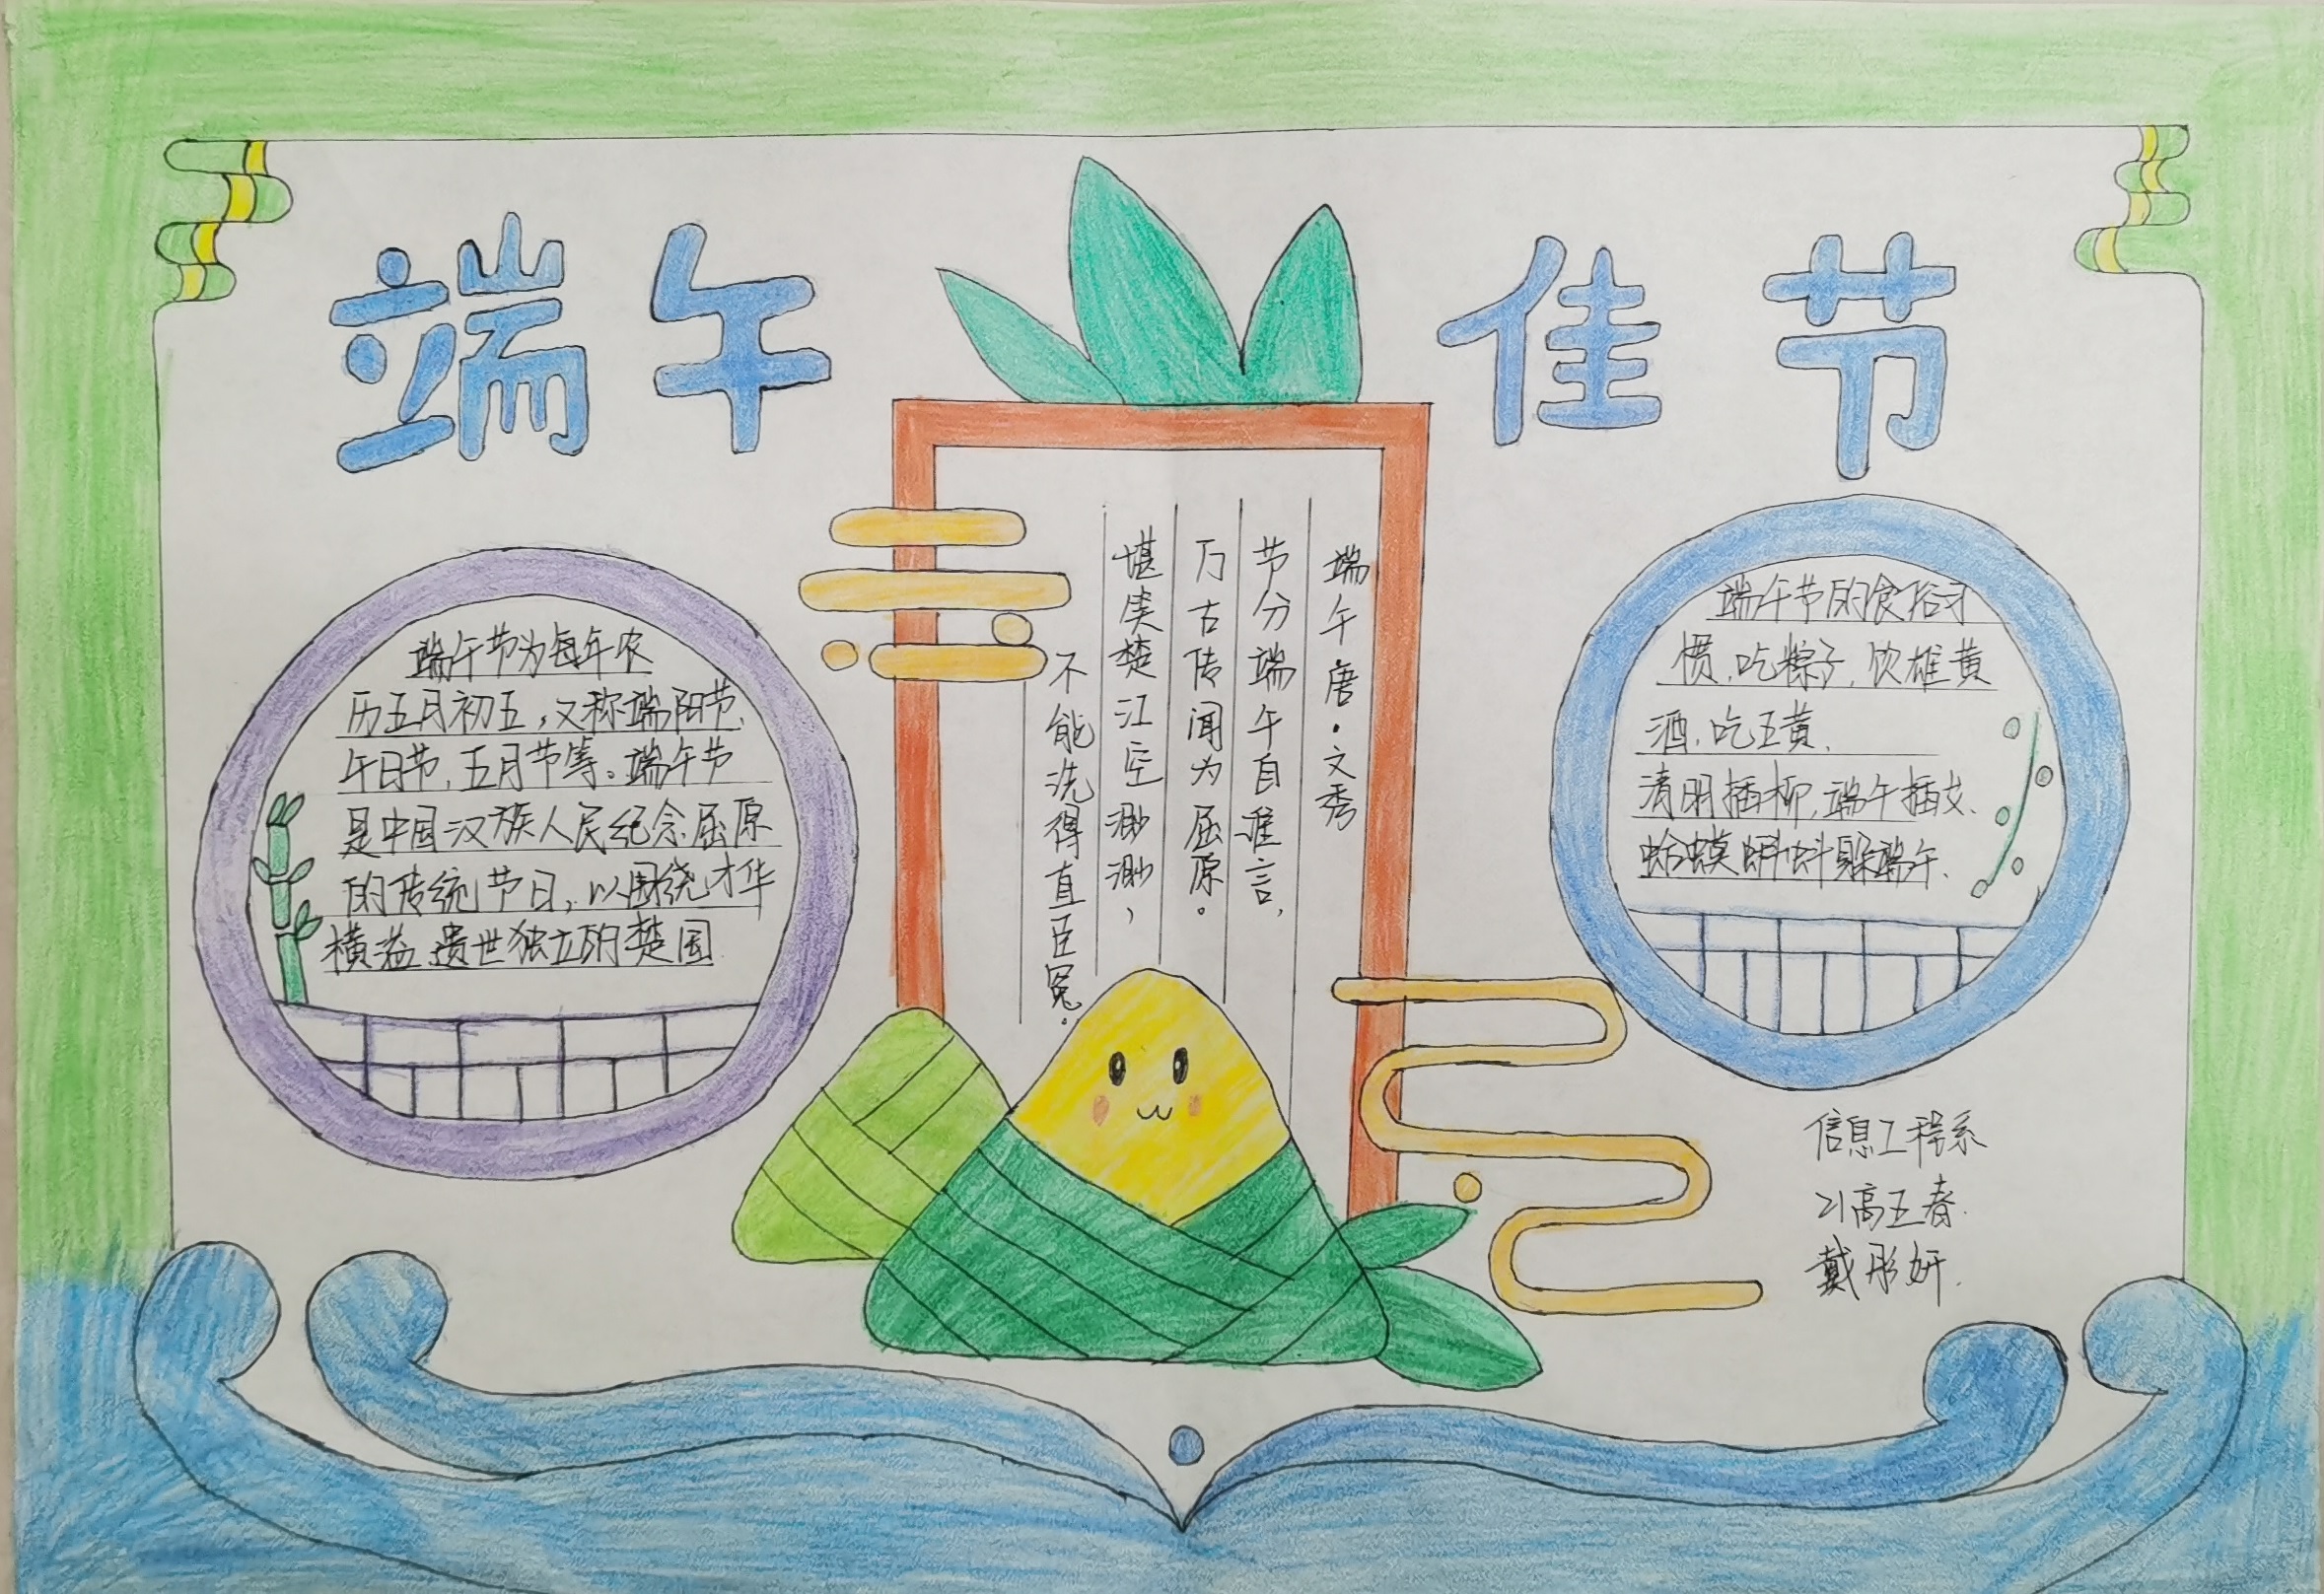 端午佳节
端午节为每年农
历五月初五,又称端阳节、
午日节,五月节等。端午节
是中国汉族人民纪念屈原
的传统节日,以围绕才华
横溢、遗世独立的楚国
端午唐·文秀
节分端午自谁言,
万古传闻为屈原。
堪笑楚江空渺渺,
不能洗得直臣冤。
端午节的食俗习
惯,吃粽子,饮雄黄
酒,吃五黄,
清明插柳,端午插艾、
蛤蟆蝌蚪躲端午、
信息工程系
21高五春.
戴彤妍.